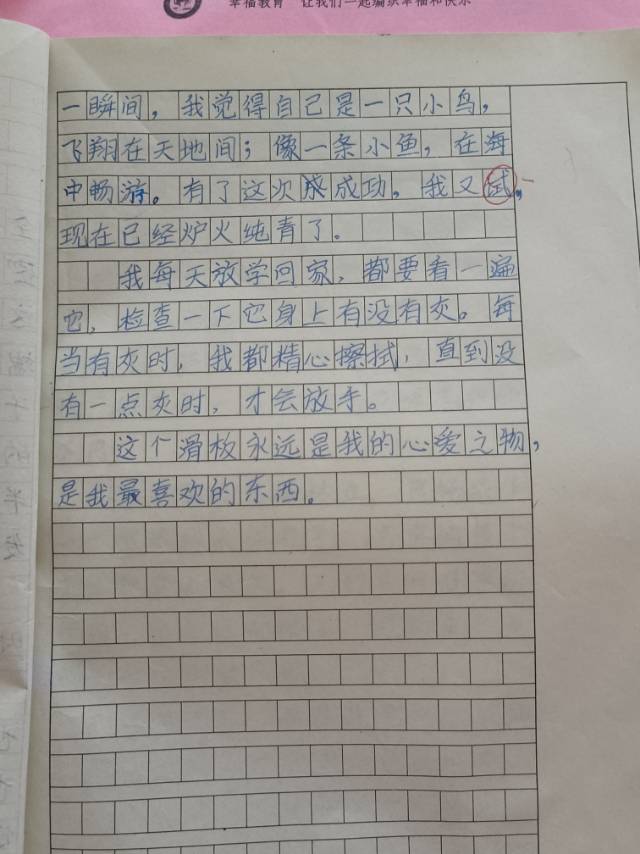 幸福教育 让我们一起编织幸福和快乐
一瞬间，我觉得自己是一只小鸟，
飞翔在天地间；像一条小鱼，在海
中畅游。有了这次成功，我又试，
现在已经炉火纯青了。
我每天放学回家，都要看一遍
它，检查一下它身上有没有灰。每
当有灰时，我都精心擦拭，直到没
有一点灰时，才会放手。
这个滑板永远是我的心爱之物，
是我最喜欢的东西。